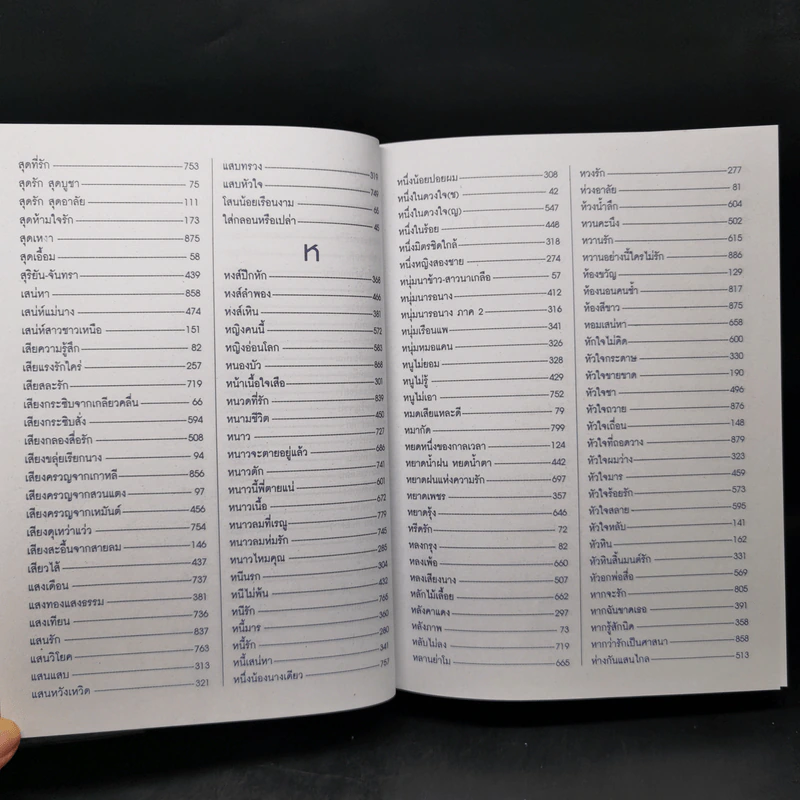 สุดที่รัก 753
สุดรัก สุดบูชา 75
สุดรัก สุดอาลัย 111
สุดห้ามใจรัก 173
สุดเหงา 875
สุดเอื้อม 58
สุริยัน-จันทรา 439
เสน่หา 858
เสน่ห์แม่นาง 474
เสน่ห์สาวชาวเหนือ 151
เสียความรู้สึก 82
เสียแรงรักใคร่ 257
เสียสละรัก 719
เสียงกระซิบจากเกลียวคลื่น 66
เสียงกระซิบสั่ง 594
เสียงกลองสื่อรัก 508
เสียงขลุ่ยเรียกนาง 94
เสียงครวญจากเกาหลี 856
เสียงครวญจากสวนแตง 97
เสียงครวญจากเหมันต์ 456
เสียงดุเหว่าแว่ว 754
เสียงสะอื้นจากสายลม 146
เสียวไส้ 437
แสงเดือน 737
แสงทองแสงธรรม 381
แสงเทียน 736
แสนรัก 837
แสนวิโยค 763
แสนแสบ 313
แสนหวังเหวิด 321
แสบทรวง 319
แสบหัวใจ 749
โสนน้อยเรือนงาม 65
ใส่กลอนหรือเปล่า 45
ห
หงส์ปีกหัก 368
หงส์ลำพอง 466
หงส์เหิน 381
หญิงคนนี้ 572
หญิงอ่อนโลก 583
หนองบัว 868
หน้าเนื้อใจเสือ 301
หนวดที่รัก 839
หนามชีวิต 450
หนาว 727
หนาวจะตายอยู่แล้ว 686
หนาวตัก 741
หนาวนี้พี่ตายแน่ 601
หนาวเนื้อ 672
หนาวลมที่เรณู 779
หนาวลมห่มรัก 745
หนาวไหมคุณ 285
หนีนรก 304
หนีไม่พ้น 432
หนีรัก 765
หนี้มาร 360
หนี้รัก 280
หนี้เสน่หา 341
หนึ่งน้องนางเดียว 757
หนึ่งน้อยปอยผม 308
หนึ่งในดวงใจ(ช) 42
หนึ่งในดวงใจ(ญ) 547
หนึ่งในร้อย 448
หนึ่งมิตรชิดใกล้ 318
หนึ่งหญิงสองชาย 274
หนุ่มนาข้าว-สาวนาเกลือ 57
หนุ่มนารอนาง 412
หนุ่มนารอนาง ภาค 2 316
หนุ่มเรือนแพ 341
หนุ่มหมอแคน 326
หนูไม่ยอม 328
หนูไม่รู้ 429
หนูไม่เอา 752
หมดเสียแหละดี 79
หมากัด 799
หยดหนึ่งของกาลเวลา 124
หยาดน้ำฝน หยดน้ำตา 442
หยาดฝนแห่งความรัก 697
หยาดเพชร 357
หยาดรุ้ง 646
หรีดรัก 72
หลงกรุง 82
หลงเพ้อ 660
หลงเสียงนาง 507
หลักไม้เลื้อย 662
หลังคาแดง 297
หลังภาพ 73
หลับไม่ลง 719
หลานย่าโม 665
หวงรัก 277
ห่วงอาลัย 81
ห้วงน้ำลึก 604
หวนคะนึง 502
หวานรัก 615
หวานอย่างนี้ใครไม่รัก 886
ห้องขวัญ 129
ห้องนอนคนช้ำ 817
ห้องสีขาว 875
หอมเสน่หา 658
หักใจไม่คิด 600
หัวใจกระดาษ 330
หัวใจขายขาด 190
หัวใจชา 496
หัวใจถวาย 876
หัวใจเถื่อน 148
หัวใจที่ถอดวาง 879
หัวใจผมว่าง 323
หัวใจมาร 459
หัวใจร้อยรัก 573
หัวใจสลาย 595
หัวใจหลับ 141
หัวหิน 162
หัวหินสิ้นมนต์รัก 331
หัวอกพ่อสื่อ 569
หากจะรัก 805
หากฉันขาดเธอ 391
หากรู้สักนิด 358
หากว่ารักเป็นศาสนา 858
ห่างกันแสนไกล 513